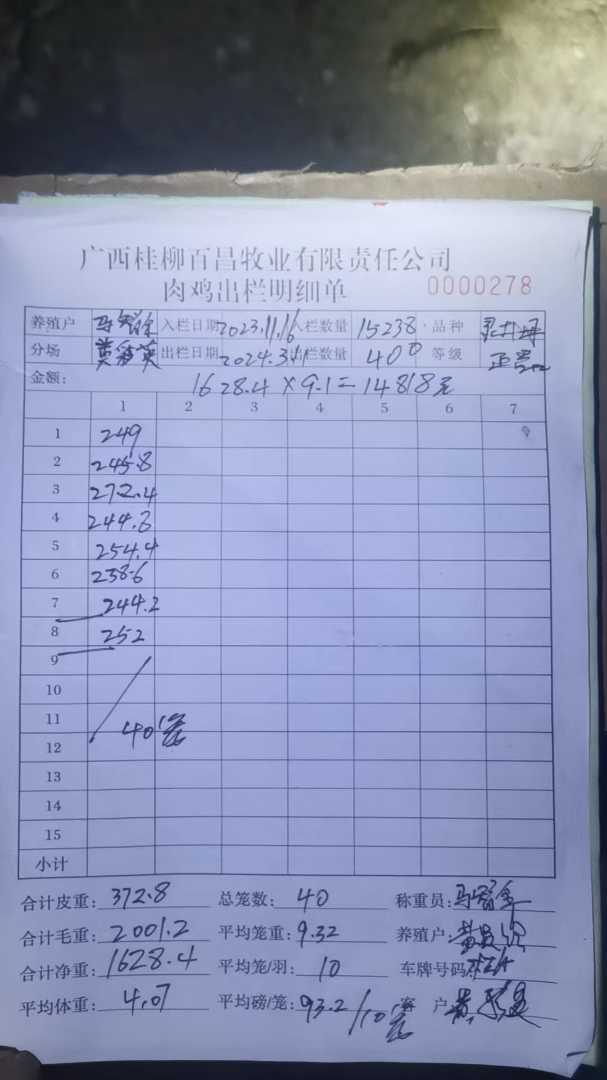 广西桂柳百昌牧业有限责任公司
肉鸡出栏明细单 0000278
养殖户 入栏日期 2023.11.16 入栏数量 15238 品种
分场 出栏日期 2024.3.11 出栏数量 400 等级
金额: 1628.4×9.1=14818元
1 2 3 4 5 6 7
1 249
2 245.8
3 272.4
4 244.8
5 254.4
6 238.6
7 244.2
8 252
9
10
11
12 40笼
13
14
15
小计
合计皮重: 372.8 总笼数: 40 称重员:
合计毛重: 2001.2 平均笼重: 9.32 养殖户:
合计净重: 1628.4 平均笼/羽: 10 车牌号码:
平均体重: 4.07 平均磅/笼: 93.2/10笼 客 户